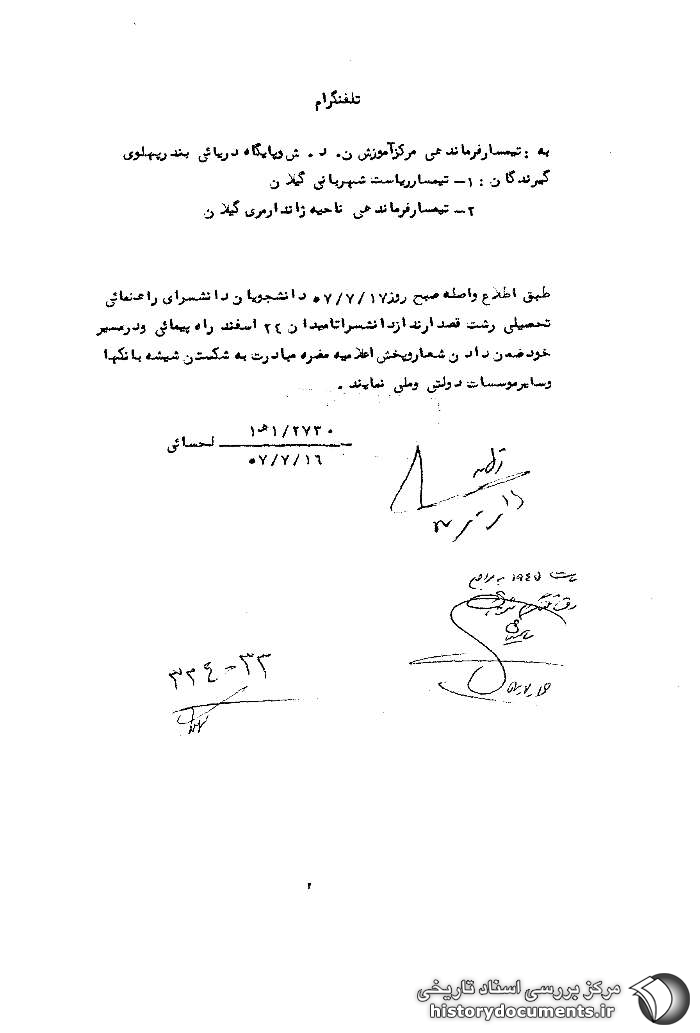 تلفنگرام
به : تیمسارفرماندهی مرکزآموزش ن. د. ش وپایگاه دریائی بندرپهلوی
گیرندگان : ۱- تیمسارریاست شهربانی گیلان
۲- تیمسارفرماندهی ناحیه ژاندارمری گیلان
طبق اطلاع واصله صبح روز ۵۷/۷/۱۷ دانشجویان دانشسرای راهنمائی
تحصیلی رشت قصد ارند ازدانشسراتامیدان ۲۴ اسفند راه پیمائی ودرمسیر
خودضمن دادن شعاروپخش اعلامیه مضره مبادرت به شکستن شیشه بانکها
وسایرموسسات دولتی وملی نمایند .
۱ه۱/۲۷۳۰
لحسائی
۵۷/۷/۱۶
ساعت ۱۹۴۵ به مراجع
۳۳-۳۲۴
۲
مرکز بررسی اسناد تاریخی
historydocuments.ir